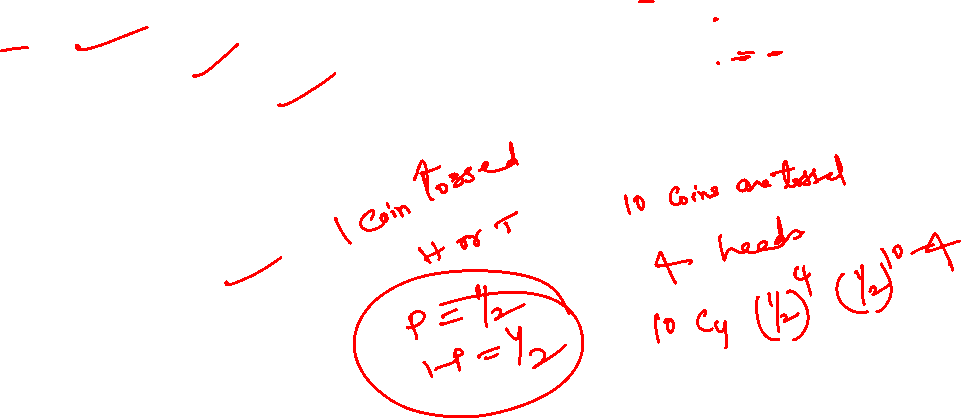 1 Coin tossed
H or T
P = 1/2
1-P = 1/2
10 Coins are tossed
4 heads
10 C4 (1/2)^4 (1/2)^10-4